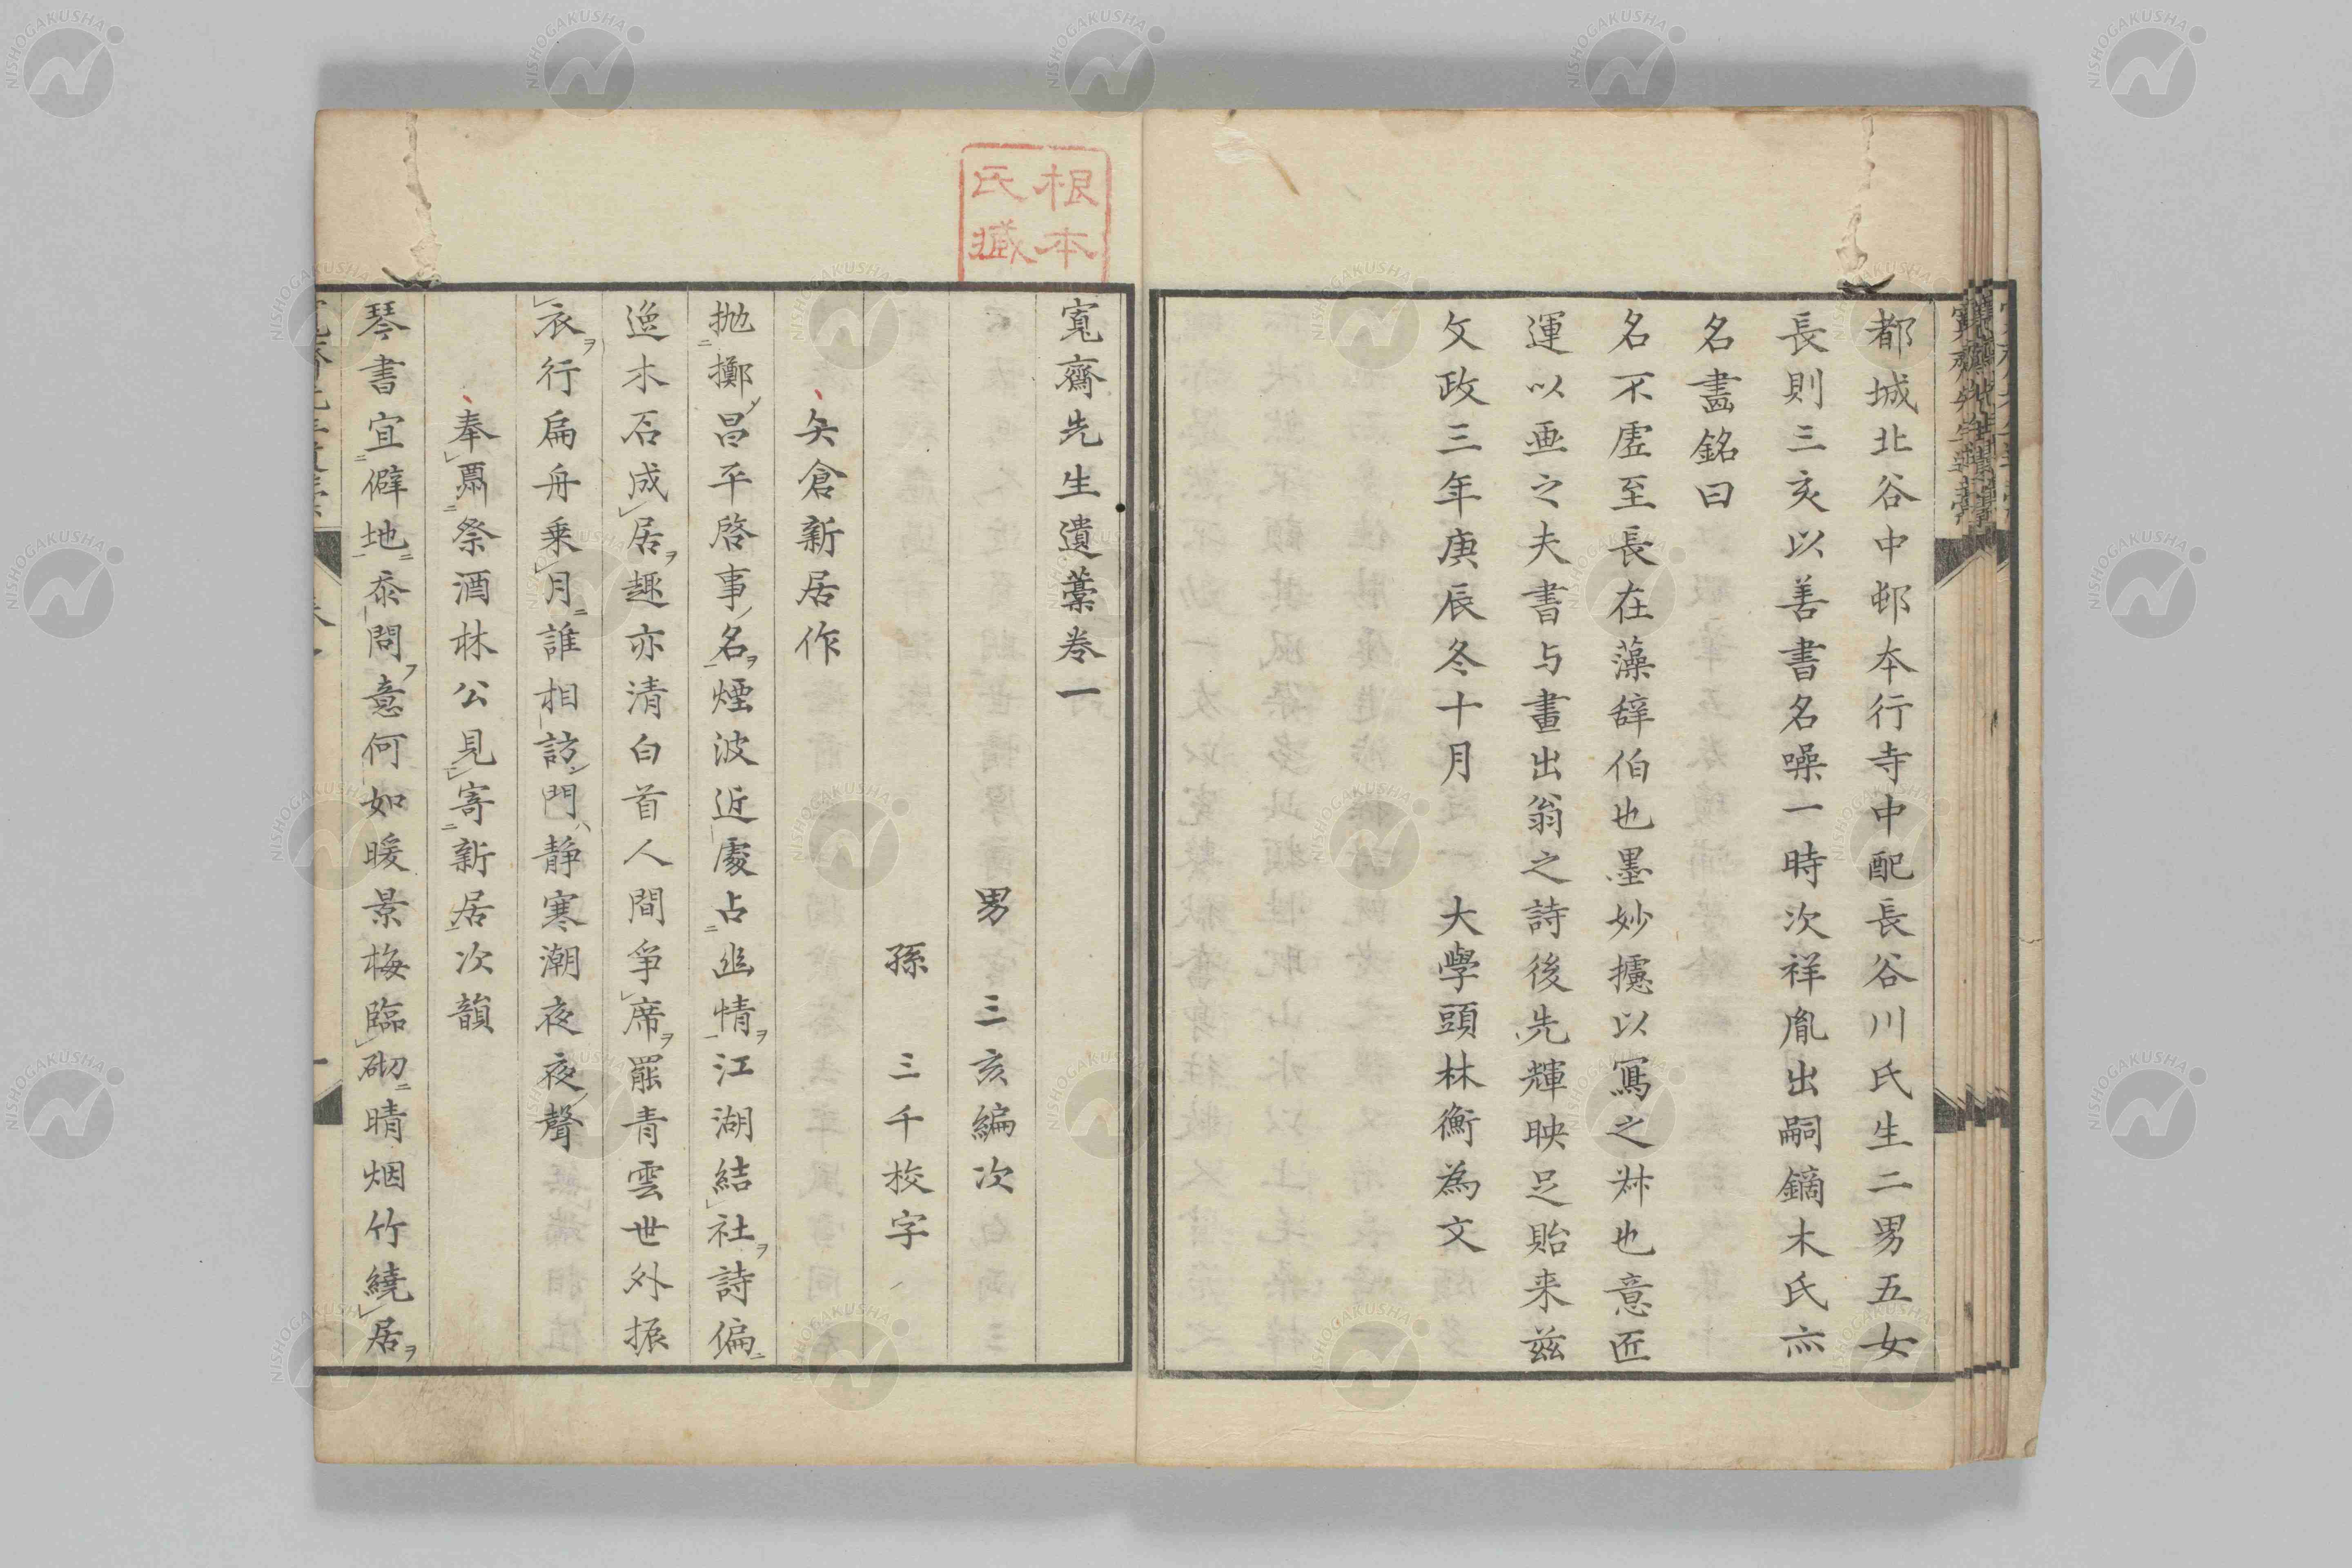 都城北谷中邨本行寺中配長谷川氏生二男五女
長則三亥以善書名噪一時次祥胤出嗣鏑木氏亦
名畫銘曰
名不虛至長在藻辞伯也墨妙攄以寫之尗也意匠
運以画之夫書与畫出翁之詩後先輝映足貽来茲
文政三年庚辰冬十月　大學頭林衡為文
根本
氏藏
寬齋先生遺藁卷一
男　三亥編次
孫　三千校字
矢倉新居作
抛擲昌平啓事名煙波近處占幽情江湖結社詩偏
逸木石成居趣亦清白首人間爭席罷青雲世外振
衣行扁舟乗月誰相訪門静寒潮夜夜聲
奉酬祭酒林公見寄新居次韻
琴書宜僻地忝問意何如暖景梅臨砌晴烟竹繞居
NISHOGAKUSHA